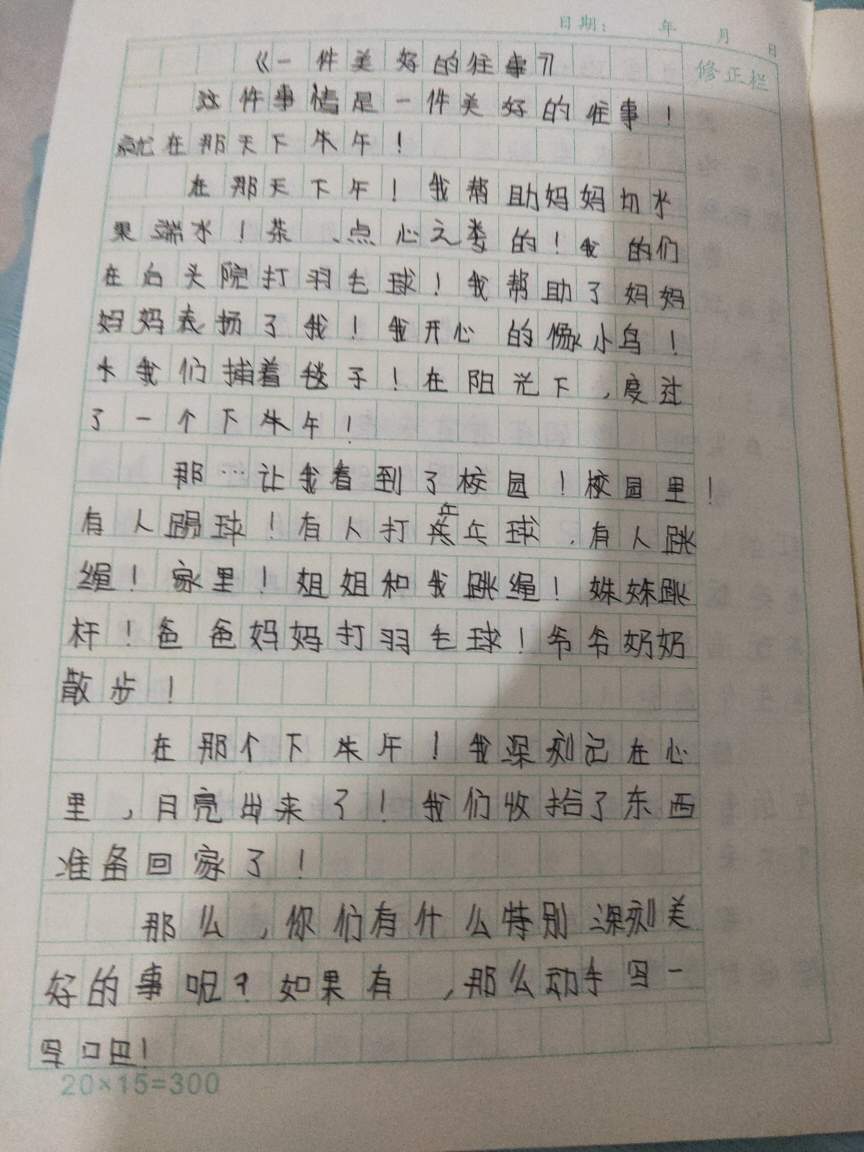 日期： 年 月 日
修正栏
《一件美好的往事》
这件事情是一件美好的往事！
就在那天下午！
在那天下午！我帮助妈妈切水
果端水！茶、点心之类的！我的们
在后头院打羽毛球！我帮助了妈妈
妈妈表扬了我！我开心的像小鸟！
我们捕着毯子！在阳光下，度过
了一个下午！
那…让我看到了校园！校园里！
有人踢球！有人打乒乓球，有人跳
绳！家里！姐姐和我跳绳！妹妹跳
杆！爸爸妈妈打羽毛球！爷爷奶奶
散步！
在那个下午！我深刻记在心
里，月亮出来了！我们收拾了东西
准备回家了！
那么，你们有什么特别深刻美
好的事呢？如果有，那么动手写一
写吧！
20×15=300